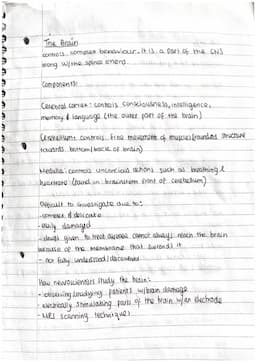 The Brain
controls complex behaviour. It is a part of the CNS
along w/the spinal chord.
Components:
Cerebral cortex: controls consciousness, intelligence,
memory & language (the outer part of the brain)
Cerebellum: controls fine movement of muscles (rounded structure
towards bottom/back of brain)
Medulla: controls unconcious actions such as breathing &
heartrate (found in brainstem front of cerebellum)
Difficult to investigate due to:
- complex & delicate
- easily damaged
- drugs given to treat diseases cannot always reach the brain
because of the membrane that surrounds it
- not fully understood/discovered
How neuroscientists study the brain:
- observing/studying patients w/brain damage
- electrically stimulating parts of the brain w/an electrode
- MRI scanning techniques